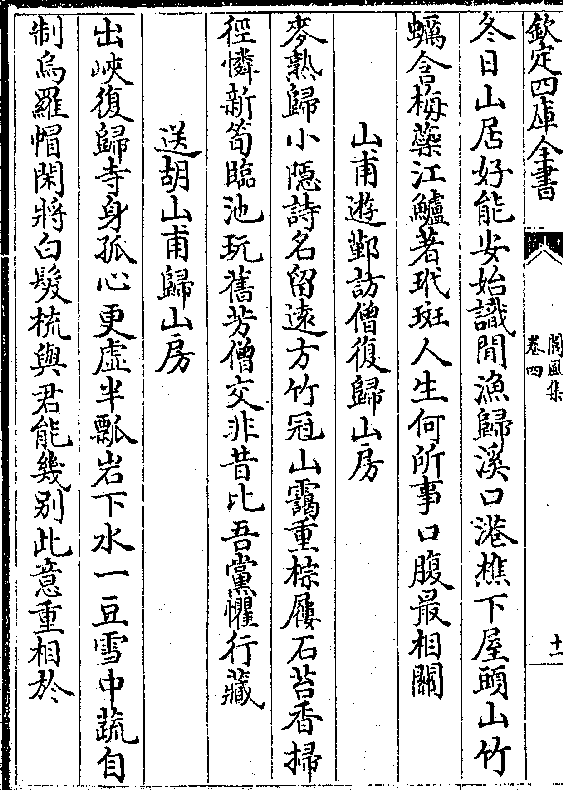 欽定四庫全書
閬風集
卷四
十一
冬日山居好能安始識閒漁歸溪口港樵下屋頭山竹
蠣含梅蘂江鱸著玳斑人生何所事口腹最相關
山甫遊鄞訪僧復歸山房
麥熟歸小隠詩名留遠方竹冠山靄重棕屨石苔香掃
徑憐新筍臨池玩舊芳僧交非昔比吾黨懼行藏
送胡山甫歸山房
出峽復歸寺身孤心更虛半瓢岩下水一豆雪中蔬自
制烏羅帽閑將白髮梳與君能幾別此意重相於